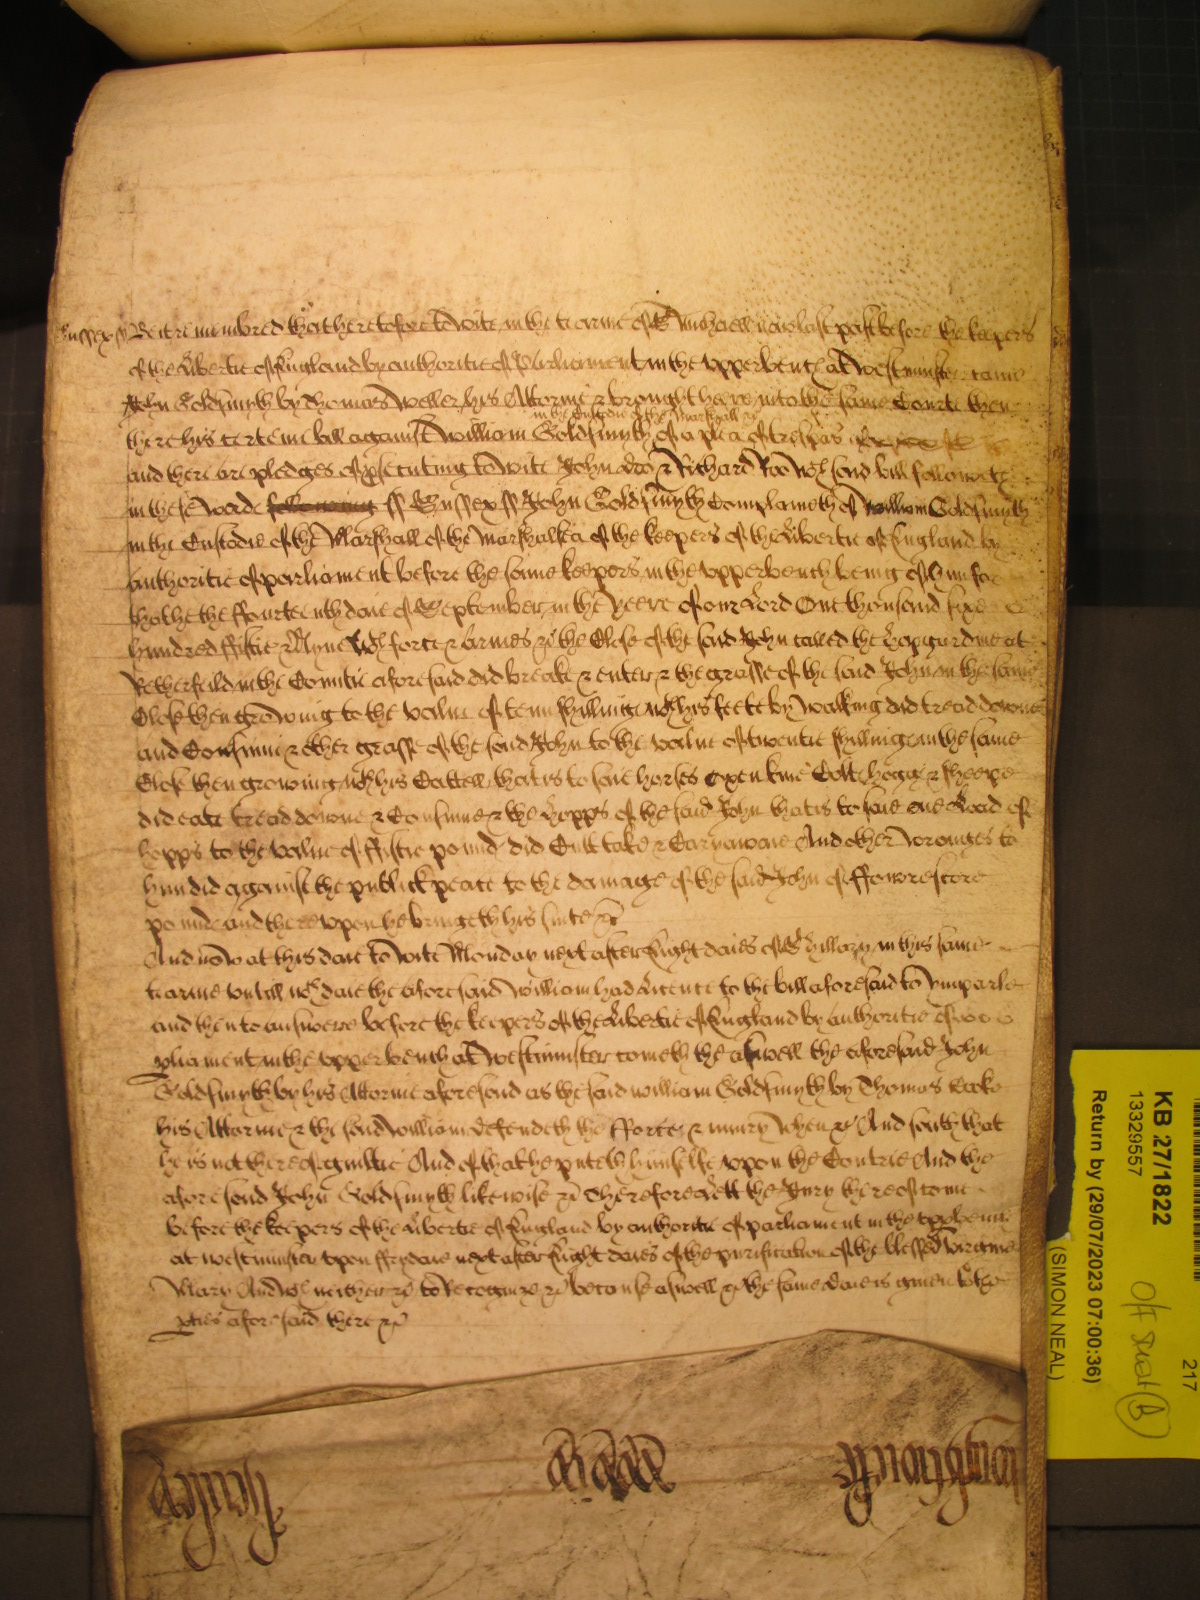 Sussex ss Be it remembred that heretofore to wite in the tearme of St Michaell now last past before the keepers
of the Libertie of England by authoritie of Parliament in the upper bench at Westminster came
John Goldsmyth by Thomas Weller his Attornie & brought here into the same Courte then
in the Custodie of the Marshall &c
there his certeine bill against William Goldsmyth of a plea of trespas
and there are pledges of psecuting to wite John Doo & Richard Roo wch said bill followeth
in these words following ss Sussex ss John Goldsmyth Complaineth of William Goldsmyth
in the Custodie of the Marshall of the Marshalsea of the keepers of the Libertie of England by
authoritie of parliament before the same keepers in the upper bench being of him for
that he the ffourteenth daie of September in the yeere of our Lord One thousand sixe
hundred fiftie & Nyne wth force & armes &c the Close of the said John called the hopgarden at
Retherfeild in the Countie aforesaid did breake & enter & the grasse of the said John in the same
Close then growing to the value of tenn shillings wth his feete by walking did tread downe
and Consume & other grasse of the said John to the value of twentie shillings in the same
Close then growing wth his Cattell that is to saie horses oxen kine Colts hoggs & sheepe
did eate tread downe & Consume & the hopps of the said John that is to saie one Load of
hopps to the value of fiftie pounds did Cutt take & Carry awaie And other wronges to
him did against the publick peace to the damage of the said John of ffowrescore
pounds and thereupon he bringeth his suite &c
And now at this daie to wite Monday next after Eight daies of St hillary in this same
tearme untill wch daie the aforesaid William had Licence to the bill aforesaid to imparle
and then to answere before the keepers of the Libertie of England by authoritie of
pliament in the upper bench at Westminster cometh the aswell the aforesaid John
Goldsmyth by his Attornie aforesaid as the said William Goldsmyth by Thomas
his Attornie & the said William defendeth the fforce & iniury when &c And saith that
he is not thereof guiltie And of that he putteth himselfe upon the Contrie And the
aforesaid John Goldsmyth likewise &c Therefore Lett the Jury thereof come
before the keepers of the Libertie of England by authoritie of parliament in the upper bench
at Westminster upon ffrydaie next after Eight daies of the purification of the blessed virgine
Mary And wch neither &c to Recognize &c because aswell &c the same daie is given to the
pties aforesaid there &c
KB 27/1822
13329557
Return by (29/07/2023 07:00:36)
(SIMON NEAL)
217